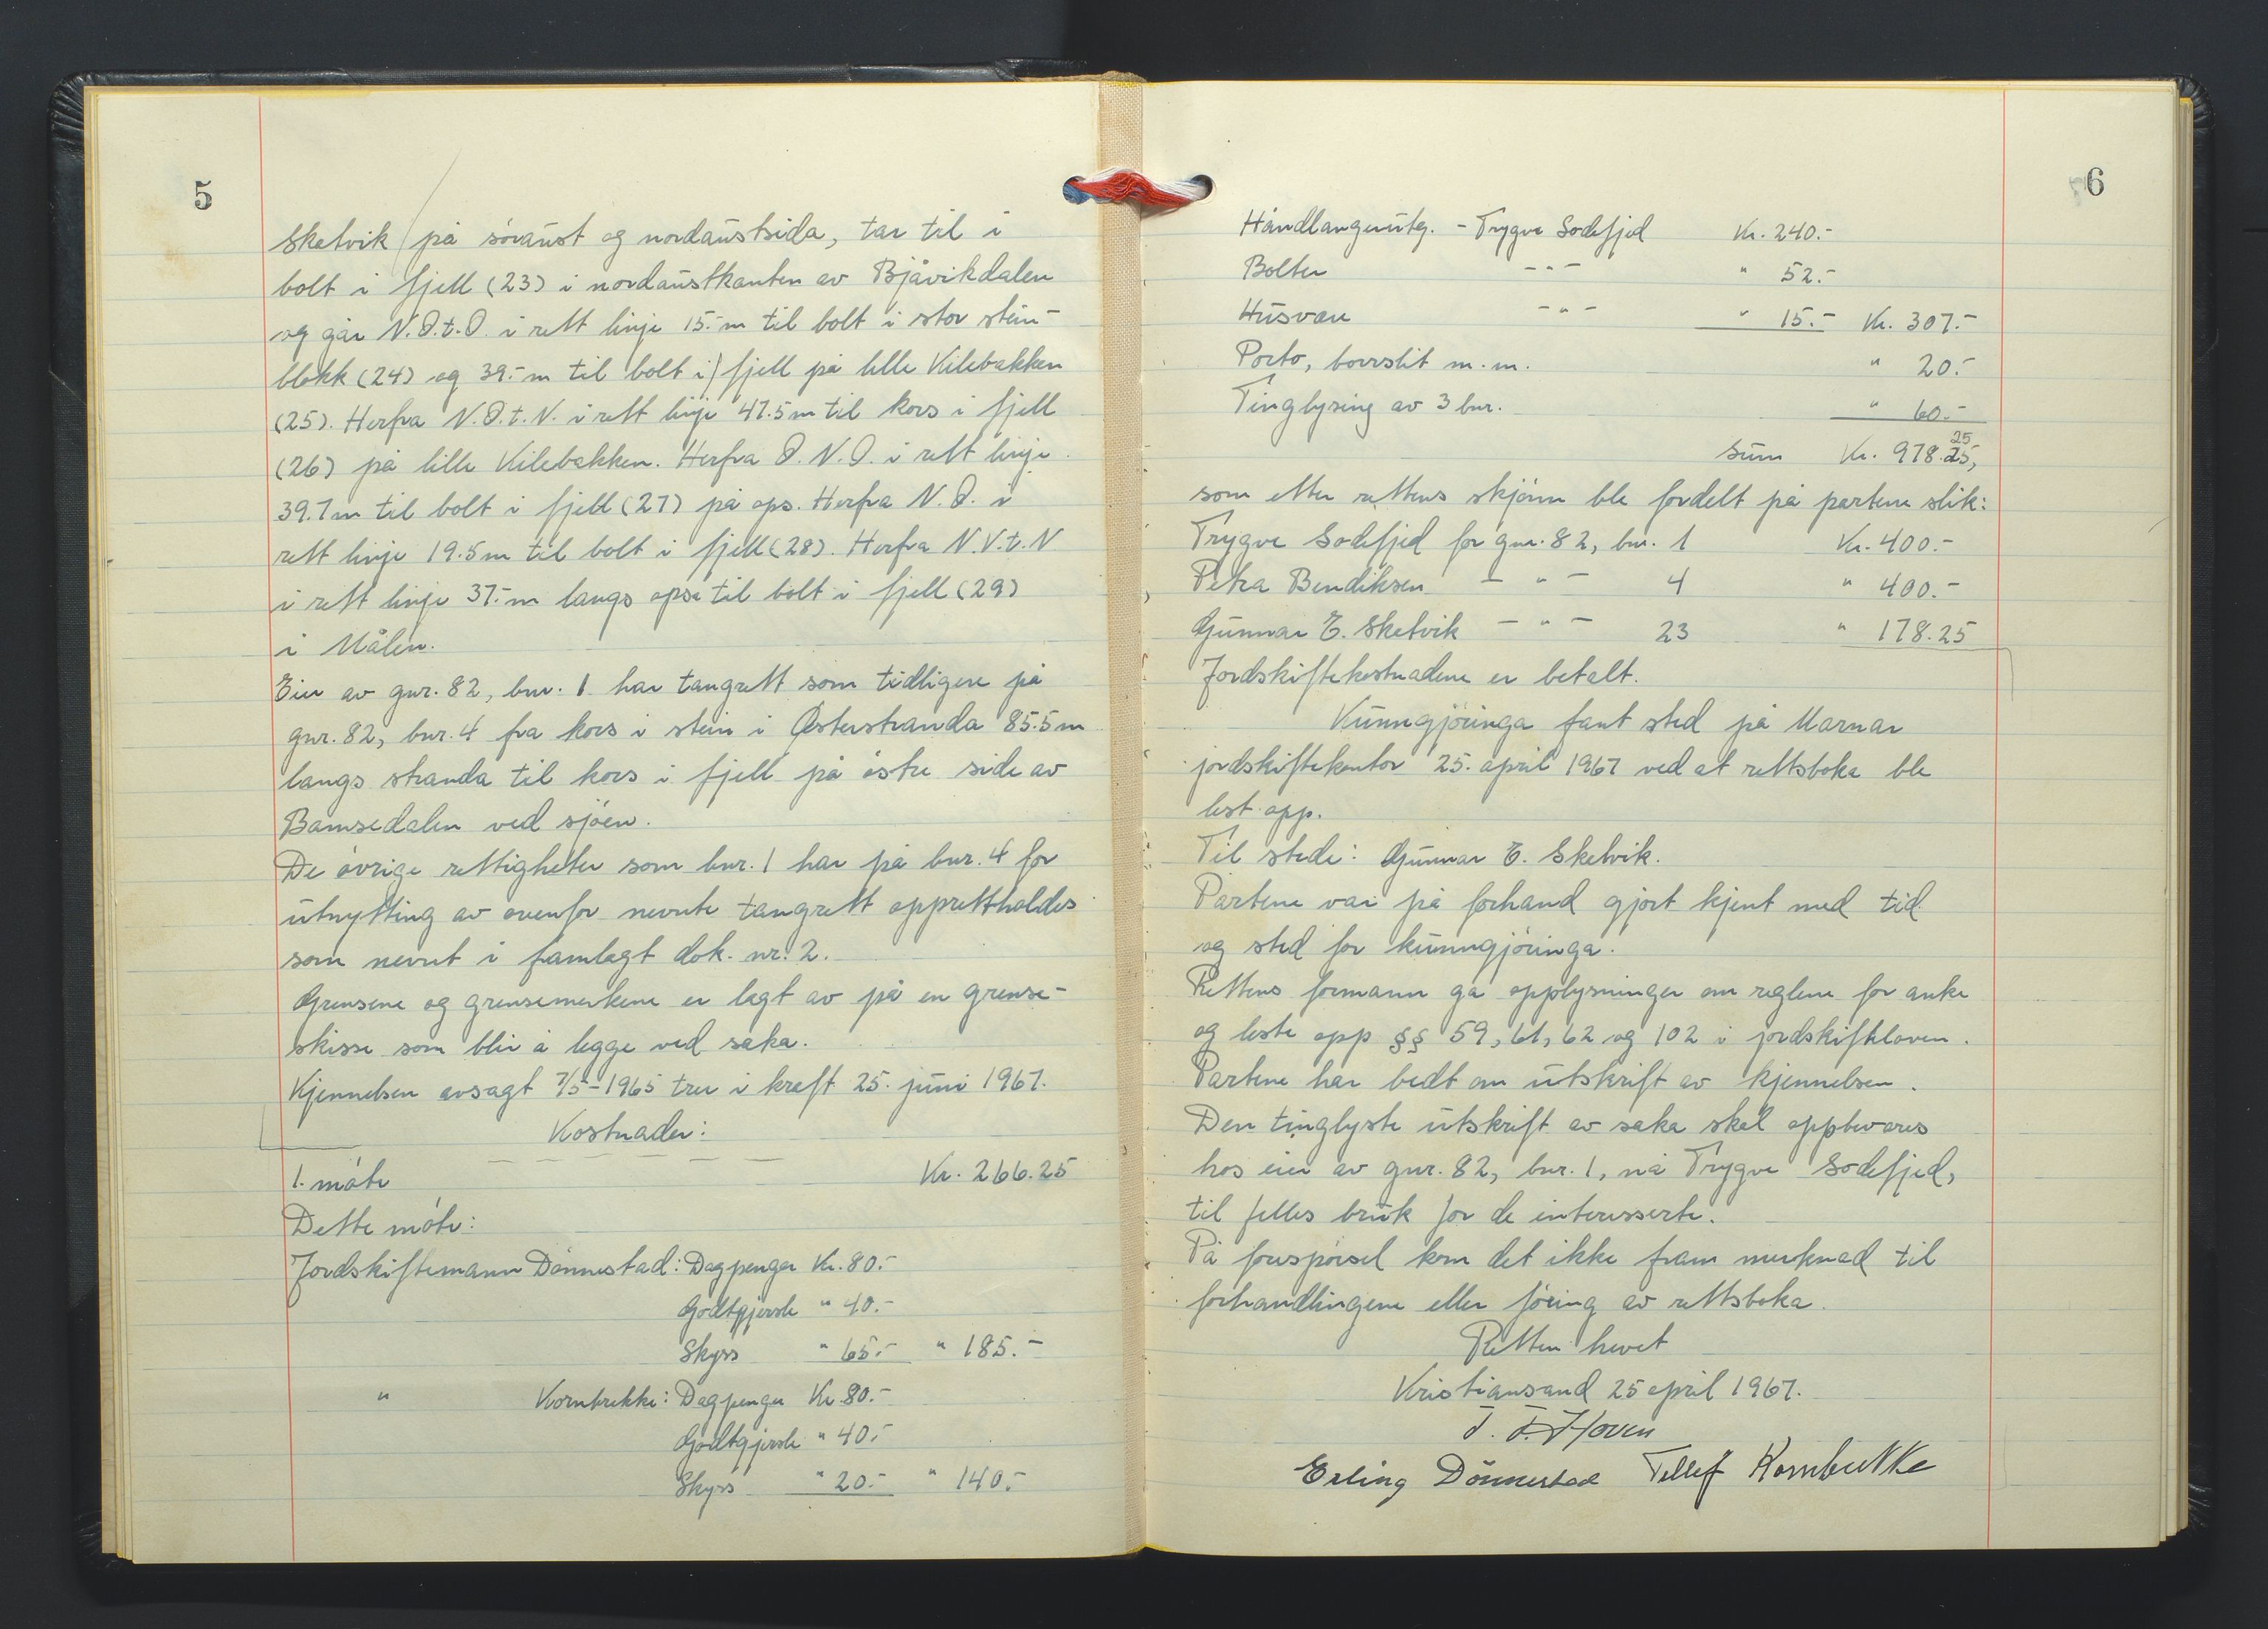 5
Sketvik på søraust og nordaustsida, tar til i
bolt i fjell (23) i nordaustkanten av Bjåvikdalen
og går N.Ø.t.Ø. i rett linje 15.-m til bolt i stor stein-
blokk (24) og 39.-m til bolt i fjell på lille Kilebakken
(25). Herfra N.Ø.t.N. i rett linje 47.5m til kors i fjell
(26) på lille Kilebakken. Herfra Ø.N.Ø. i rett linje
39.7m til bolt i fjell (27) på ops. Herfra N.Ø. i
rett linje 19.5m til bolt i fjell (28). Herfra N.V.t.N
i rett linje 37.-m langs opsa til bolt i fjell (29)
i Målen.
Eier av gnr. 82, bnr. 1 har tangrett som tidligere på
gnr. 82, bnr. 4 fra kors i stein i Østerstranda 85.5m
langs stranda til kors i fjell på østre side av
Bamsedalen ved sjøen.
De øvrige rettigheter som bnr. 1 har på bnr. 4 for
utnytting av ovenfor nevnte tangrett opprettholdes
som nevnt i framlagt dok. nr. 2.
Grensene og grensemerkene er lagt av på en grense-
skisse som blir å legge ved saka.
Kjennelsen avsagt 7/5-1965 trer i kraft 25. juni 1967.
Kostnader:
1. møte Kr. 266.25
Dette møte:
Jordskiftemann Dønnestad: Dagpenger Kr. 80.-
Godtgjørsle " 40.-
Skyss " 65.- " 185.-
" Kornbrekke: Dagpenger Kr. 80.-
Godtgjørsle " 40.-
Skyss " 20.- " 140.-
6
Håndlangerutg. - Trygve Sodefjed Kr. 240.-
Bolter - " - " 52.-
Husvære - " - " 15.- Kr. 307.-
Porto, borrslit m.m. " 20.-
Tinglysing av 3 bnr. " 60.-
Sum Kr. 978.25,
som etter rettens skjønn ble fordelt på partene slik:
Trygve Sodefjed for gnr. 82, bnr. 1 Kr. 400.-
Petra Bendiksen - " - 4 " 400.-
Gunnar E. Sketvik - " - 23 " 178.25
Jordskiftekostnadene er betalt.
Kunngjøringa fant sted på Marnar
jordskiftekontor 25. april 1967 ved at rettsboka ble
lest opp.
Til stede: Gunnar E. Sketvik.
Partene var på forhand gjort kjent med tid
og sted for kunngjøringa.
Rettens formann ga opplysninger om reglene for anke
og leste opp §§ 59, 61, 62 og 102 i jordskifteloven.
Partene har bedt om utskrift av kjennelsen.
Den tinglyste utskrift av saka skal oppbevares
hos eier av gnr. 82, bnr. 1, nå Trygve Sodefjed,
til felles bruk for de interesserte.
På forespørsel kom det ikke fram merknad til
forhandlingene eller føring av rettsboka.
Retten hevet
Kristiansand 25 april 1967.
T. F. Hoven
Erling Dönnestad Tellef Kornbrekke